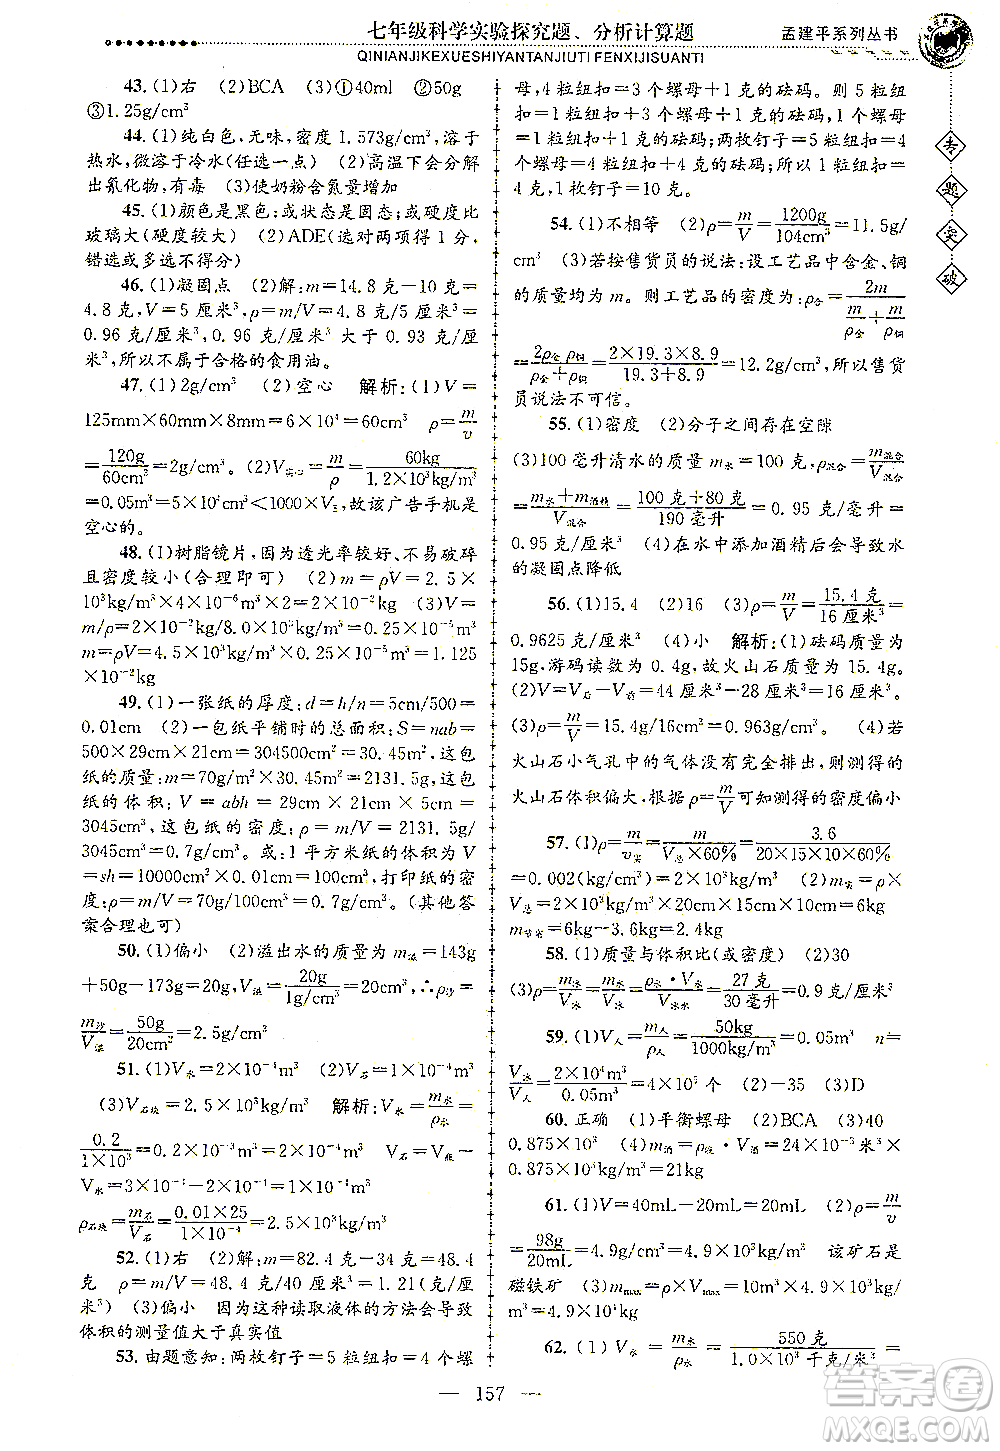 七年级科学实验探究题、分析计算题
孟建平系列丛书
QINIANJIKEXUESHIYANTANJIUTI FENXIJISUANTI
专
题
突
破
43. (1)右 (2)BCA (3)①40ml ②50g
③1.25g/cm³
44. (1)纯白色,无味,密度 1.573g/cm³,溶于
热水,微溶于冷水(任选一点) (2)高温下会分解
出氰化物,有毒 (3)使奶粉含氮量增加
45. (1)颜色是黑色;或状态是固态;或硬度比
玻璃大(硬度较大) (2)ADE(选对两项得 1 分,
错选或多选不得分)
46. (1)凝固点 (2)解:m=14.8 克-10 克=
4.8 克,V=5 厘米³,ρ=m/V=4.8 克/5 厘米³=
0.96 克/厘米³ 0.96 克/厘米³ 大于 0.93 克/厘
米³,所以不属于合格的食用油。
47. (1)2g/cm³ (2)空心 解析:(1)V=
125mm×60mm×8mm=6×10⁴=60cm³ ρ=m/v
=120g/60cm³=2g/cm³。(2)V实心=m/ρ=60kg/1.2×10³kg/m³
=0.05m³=5×10⁴cm³<1000×V,故该广告手机是
空心的。
48. (1)树脂镜片,因为透光率较好、不易破碎
且密度较小(合理即可) (2)m=ρV=2.5×
10³kg/m³×4×10⁻⁶m³/m³=2=10⁻²kg (3)V=
m/ρ=2×10⁻²kg/8.0×10³kg/m³=2.5×10⁻⁶m³
m=ρV=4.5×10³kg/m³×2.5×10⁻⁶m³=1.125
×10⁻²kg
49. (1)一张纸的厚度:d=h/n=5cm/500=
0.01cm (2)一包纸平铺时的总面积:S=nab=
500×29cm×21cm=304500cm²=30.45m²;这包
纸的质量:m=70g/m²×30.45m²=2131.5g,这包
纸的体积:V=abh=29cm×21cm×5cm=
3045cm³,这包纸的密度:ρ=m/V=2131.5g/
3045cm³=0.7g/cm³。或:1 平方米纸的体积为 V
=sh=10000cm²×0.01cm=100cm³,打印纸的密
度:ρ=m/V=70g/100cm³=0.7g/cm³。(其他答
案合理也可)
50. (1)偏小 (2)溢出水的质量为 m溢=143g
+50g-173g=20g,V溢=20g/1g/cm³=20cm³,∴ρ沙=
m沙/V溢=50g/20cm³=2.5g/cm³
51. (1)V水=2×10⁻⁴m³ (2)V石=1×10⁻⁴m³
(3)V石块=2.5×10³kg/m³ 解析:V水=m水/ρ水=
0.2/1×10³=2×10⁻⁴m³ V石=V瓶-
V水=3×10⁻⁴-2×10⁻⁴=1×10⁻⁴m³
ρ石块=m石/V石=0.01×25/1×10⁻⁴=2.5×10³kg/m³
52. (1)右 (2)解:m=82.4 克-34 克=48.4
克 ρ=m/V=48.4 克/40 厘米³=1.21(克/厘
米³) (3)偏小 因为这种读取液体的方法会导致
体积的测量值大于真实值
53. 由题意知:两枚钉子=5 粒纽扣=4 个螺
母,4 粒纽扣=3 个螺母+1 克的砝码。则 5 粒纽扣
=1 粒纽扣+3 个螺母+1 克的砝码=4 个螺母
=1 粒纽扣+1 克的砝码;两枚钉子=5 粒纽扣=4
个螺母=4 粒纽扣+4 克的砝码;所以 1 粒纽扣=
4 克;1 枚钉子=10 克。
54. (1)不相等 (2)ρ=m/V=1200g/104cm³=11.5g/
cm³ (3)若按售货员的说法:设工艺品中含金、铜
的质量均为 m。则工艺品的密度为:ρ金=2m/(m/ρ金+m/ρ铜)
=2ρ金ρ铜/ρ金+ρ铜=2×19.3×8.9/19.3+8.9=12.2g/cm³,所以售货
员说法不可信。
55. (1)密度 (2)分子之间存在空隙
(3)100 毫升清水的质量 m水=100 克,ρ=m混合/V混合
=m水+m酒精/V混合=100 克+80 克/190 毫升=0.95 克/毫升=
0.95 克/厘米³ (4)在水中添加酒精后会导致水
的凝固点降低
56. (1)15.4 (2)16 (3)ρ=m/V=15.4 克/16 厘米³=
0.9625 克/厘米³ (4)小 解析:(1)砝码质量为
15g,游码读数为 0.4g,故火山石质量为 15.4g。
(2)V=V总-V沙=44cm³-28cm³=16cm³。
(3)ρ=m/V=15.4g/16cm³=0.963g/cm³ (4)若
火山石小气孔中的气体没有完全排出,则测得的
火山石体积偏大,根据ρ=m/V可知测得的密度偏小
57. (1)ρ=m/v实=m/V总×60%=3.6/20×15×10×60%
=0.002(kg/cm³) (2)m实=ρ×V=6kg
m节省=6kg-3.6kg=2.4kg
58. (1)质量与体积比(或密度) (2)30
(3)ρ=m冰/V冰=ρ水·V水/V冰=27 克/30 毫升=0.9 克/厘米³
59. (1)V人=m人/ρ人=50kg/1000kg/m³=0.05m³ n=
V冰/V人=2×10⁴m³/0.05m³=4×10⁵ 个 (2)-35 (3)D
60. 正确 (1)平衡螺母 (2)BCA (3)40
0.875×10³ (4)m酒=ρ酒·V酒=24×10⁻³米³×
0.875×10³kg/米³=21kg
61. (1)V=40mL-20mL=20mL (2)ρ=m/v
=98g/20mL=4.9g/mL=4.9g/cm³ 该矿石是
磁铁矿 (3)mmax=ρ×Vmax=10m³×4.9×10³kg/
m³=4.9×10⁴kg
62. (1)V水=m水/ρ水=550 克/1.0×10³ 千克/米³=
— 157 —
答案圈
MXQE.COM